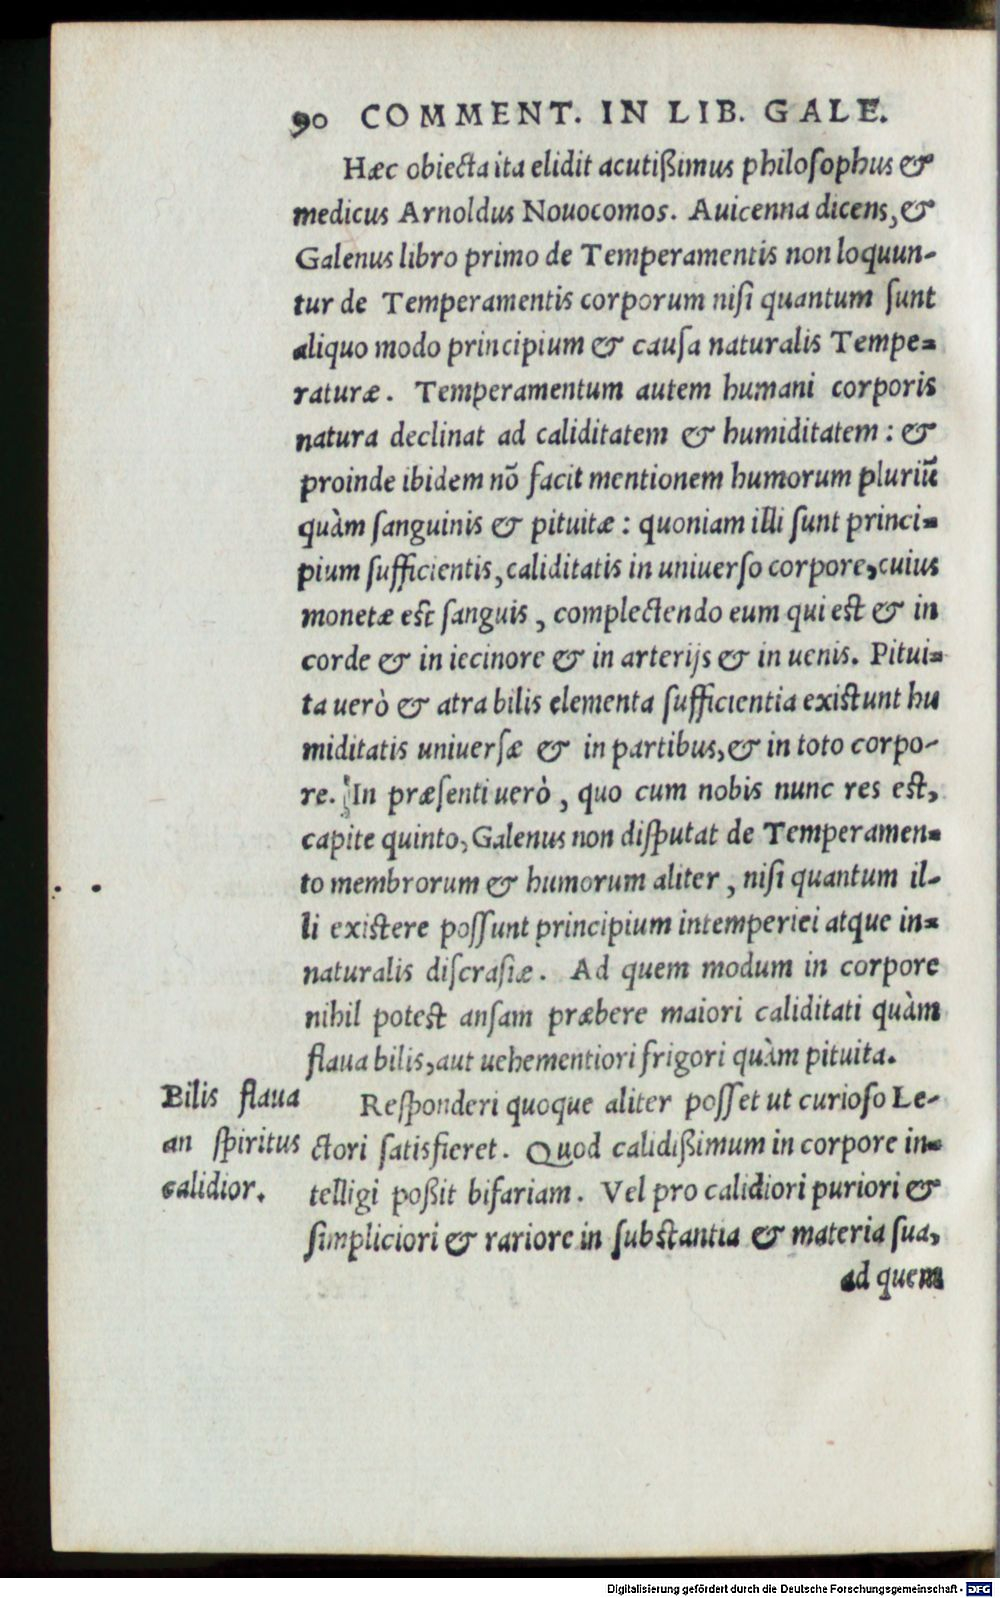 90 COMMENT. IN LIB. GALE.
Hæc obiecta ita elidit acutißimus philosophus &
medicus Arnoldus Nouocomos. Auicenna dicens, &
Galenus libro primo de Temperamentis non loquun-
tur de Temperamentis corporum nisi quantum sunt
aliquo modo principium & causa naturalis Tempe-
raturæ. Temperamentum autem humani corporis
natura declinat ad caliditatem & humiditatem : &
proinde ibidem nõ facit mentionem humorum pluriũ
quàm sanguinis & pituitæ : quoniam illi sunt princi-
pium sufficientis, caliditatis in uniuerso corpore, cuius
monetæ est sanguis, complectendo eum qui est & in
corde & in iecinore & in arterijs & in uenis. Pitui-
ta uerò & atra bilis elementa sufficientia existunt hu
miditatis uniuersæ & in partibus, & in toto corpo-
re. In præsenti uerò, quo cum nobis nunc res est,
capite quinto, Galenus non disputat de Temperamen-
to membrorum & humorum aliter, nisi quantum il-
li existere possunt principium intemperiei atque in-
naturalis discrasiæ. Ad quem modum in corpore
nihil potest ansam præbere maiori caliditati quàm
flaua bilis, aut uehementiori frigori quàm pituita.
Bilis flaua
an spiritus
calidior.
Responderi quoque aliter posset ut curioso Le-
ctori satisfieret. Quod calidißimum in corpore in-
telligi poßit bifariam. Vel pro calidiori puriori &
simpliciori & rariore in substantia & materia sua,
ad quem
Digitalisierung gefördert durch die Deutsche Forschungsgemeinschaft - DFG